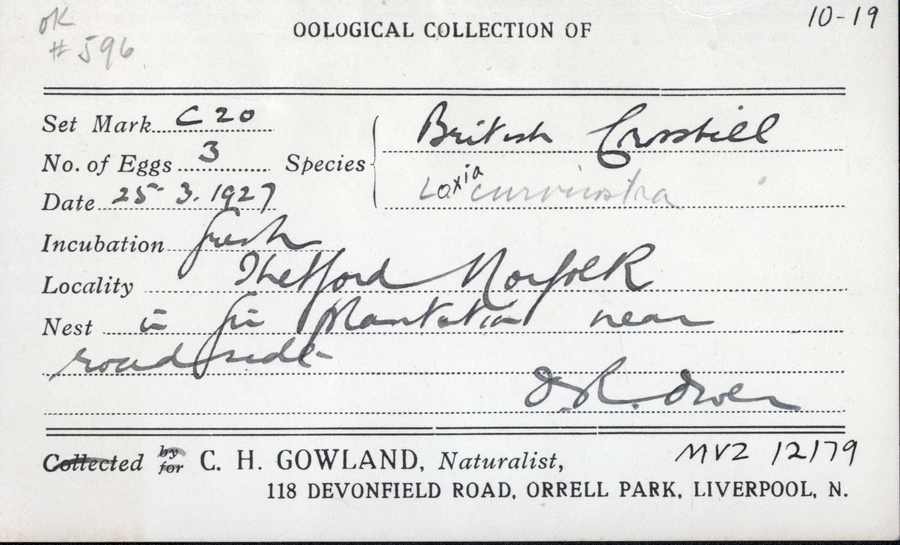 OK
#596
10-19
OOLOGICAL COLLECTION OF
Set Mark C 20
No. of Eggs 3
Species British Crossbill
Loxia curvirostra
Date 25 3. 1927
Incubation fresh
Locality Thetford Norfolk
Nest in fir plantation near
road side
J. R. Owen
Collected by for C. H. GOWLAND, Naturalist,
MVZ 12179
118 DEVONFIELD ROAD, ORRELL PARK, LIVERPOOL, N.